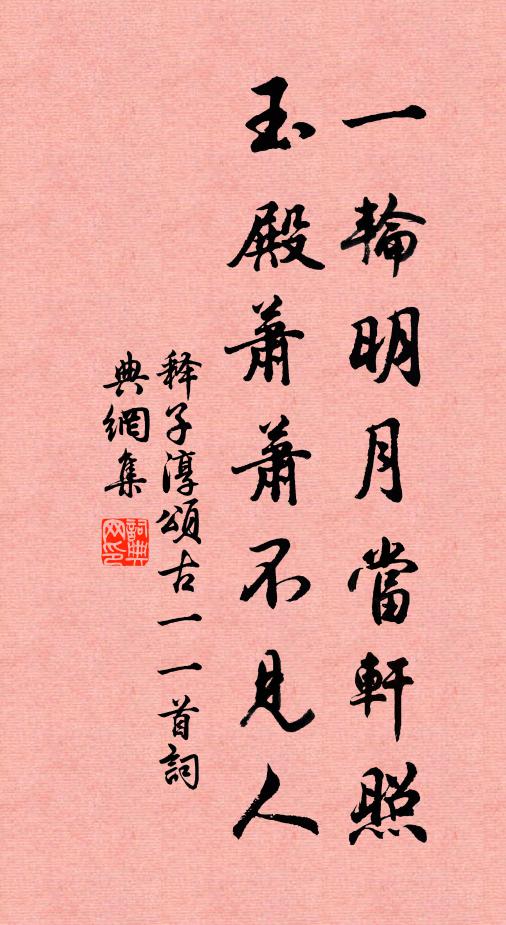 一輪明月當軒照
玉殿蕭蕭不見人
释子淳頌古一一首詞
典網集
詞典网印